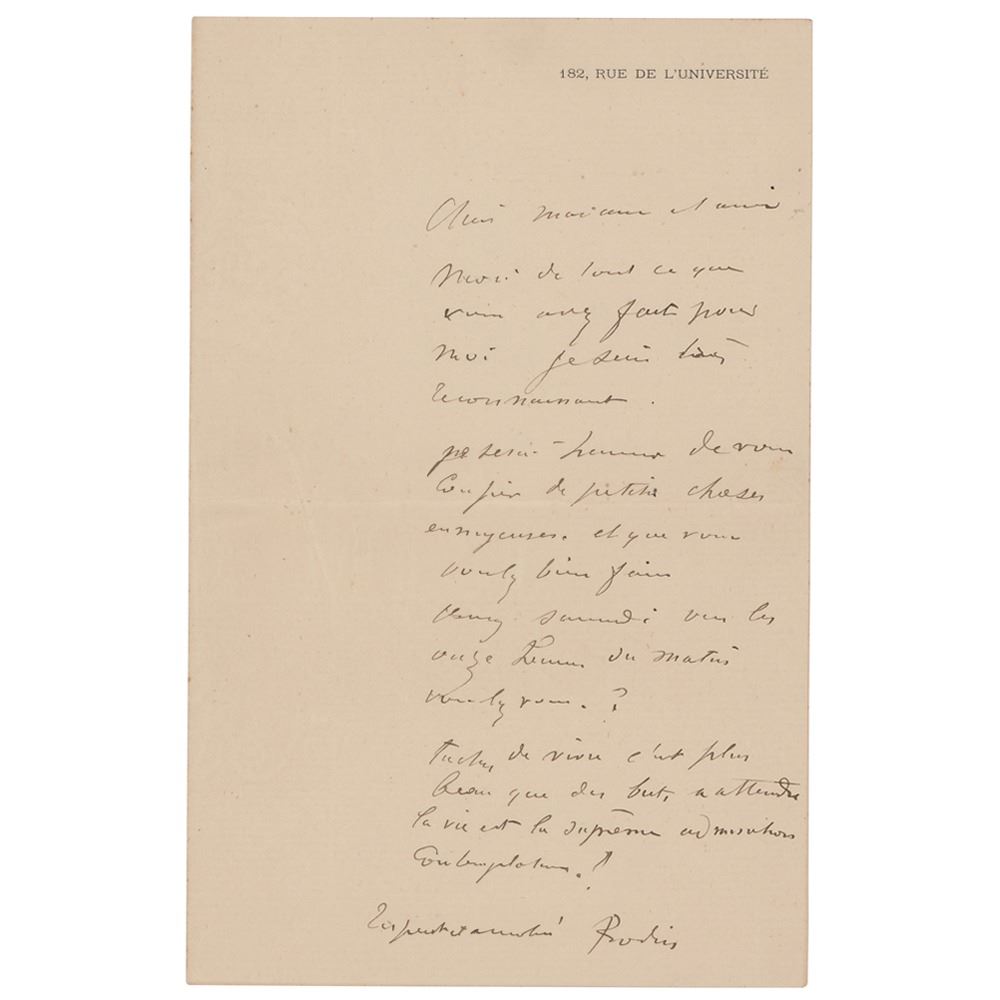 182, RUE DE L'UNIVERSITÉ
Chère madame et amie
Merci de tout ce que
vous avez fait pour
moi je suis très
reconnaissant.
je serai heureux de vous
confier de petites choses
ennuyeuses. et que vous
voulez bien faire
Venez samedi vers les
onze heures du matin
voulez vous. ?
Tachez de vivre c'est plus
beau que des buts, a attendre
la vie est la suprême admiration
contemplation. !
Respect et amitié Rodin